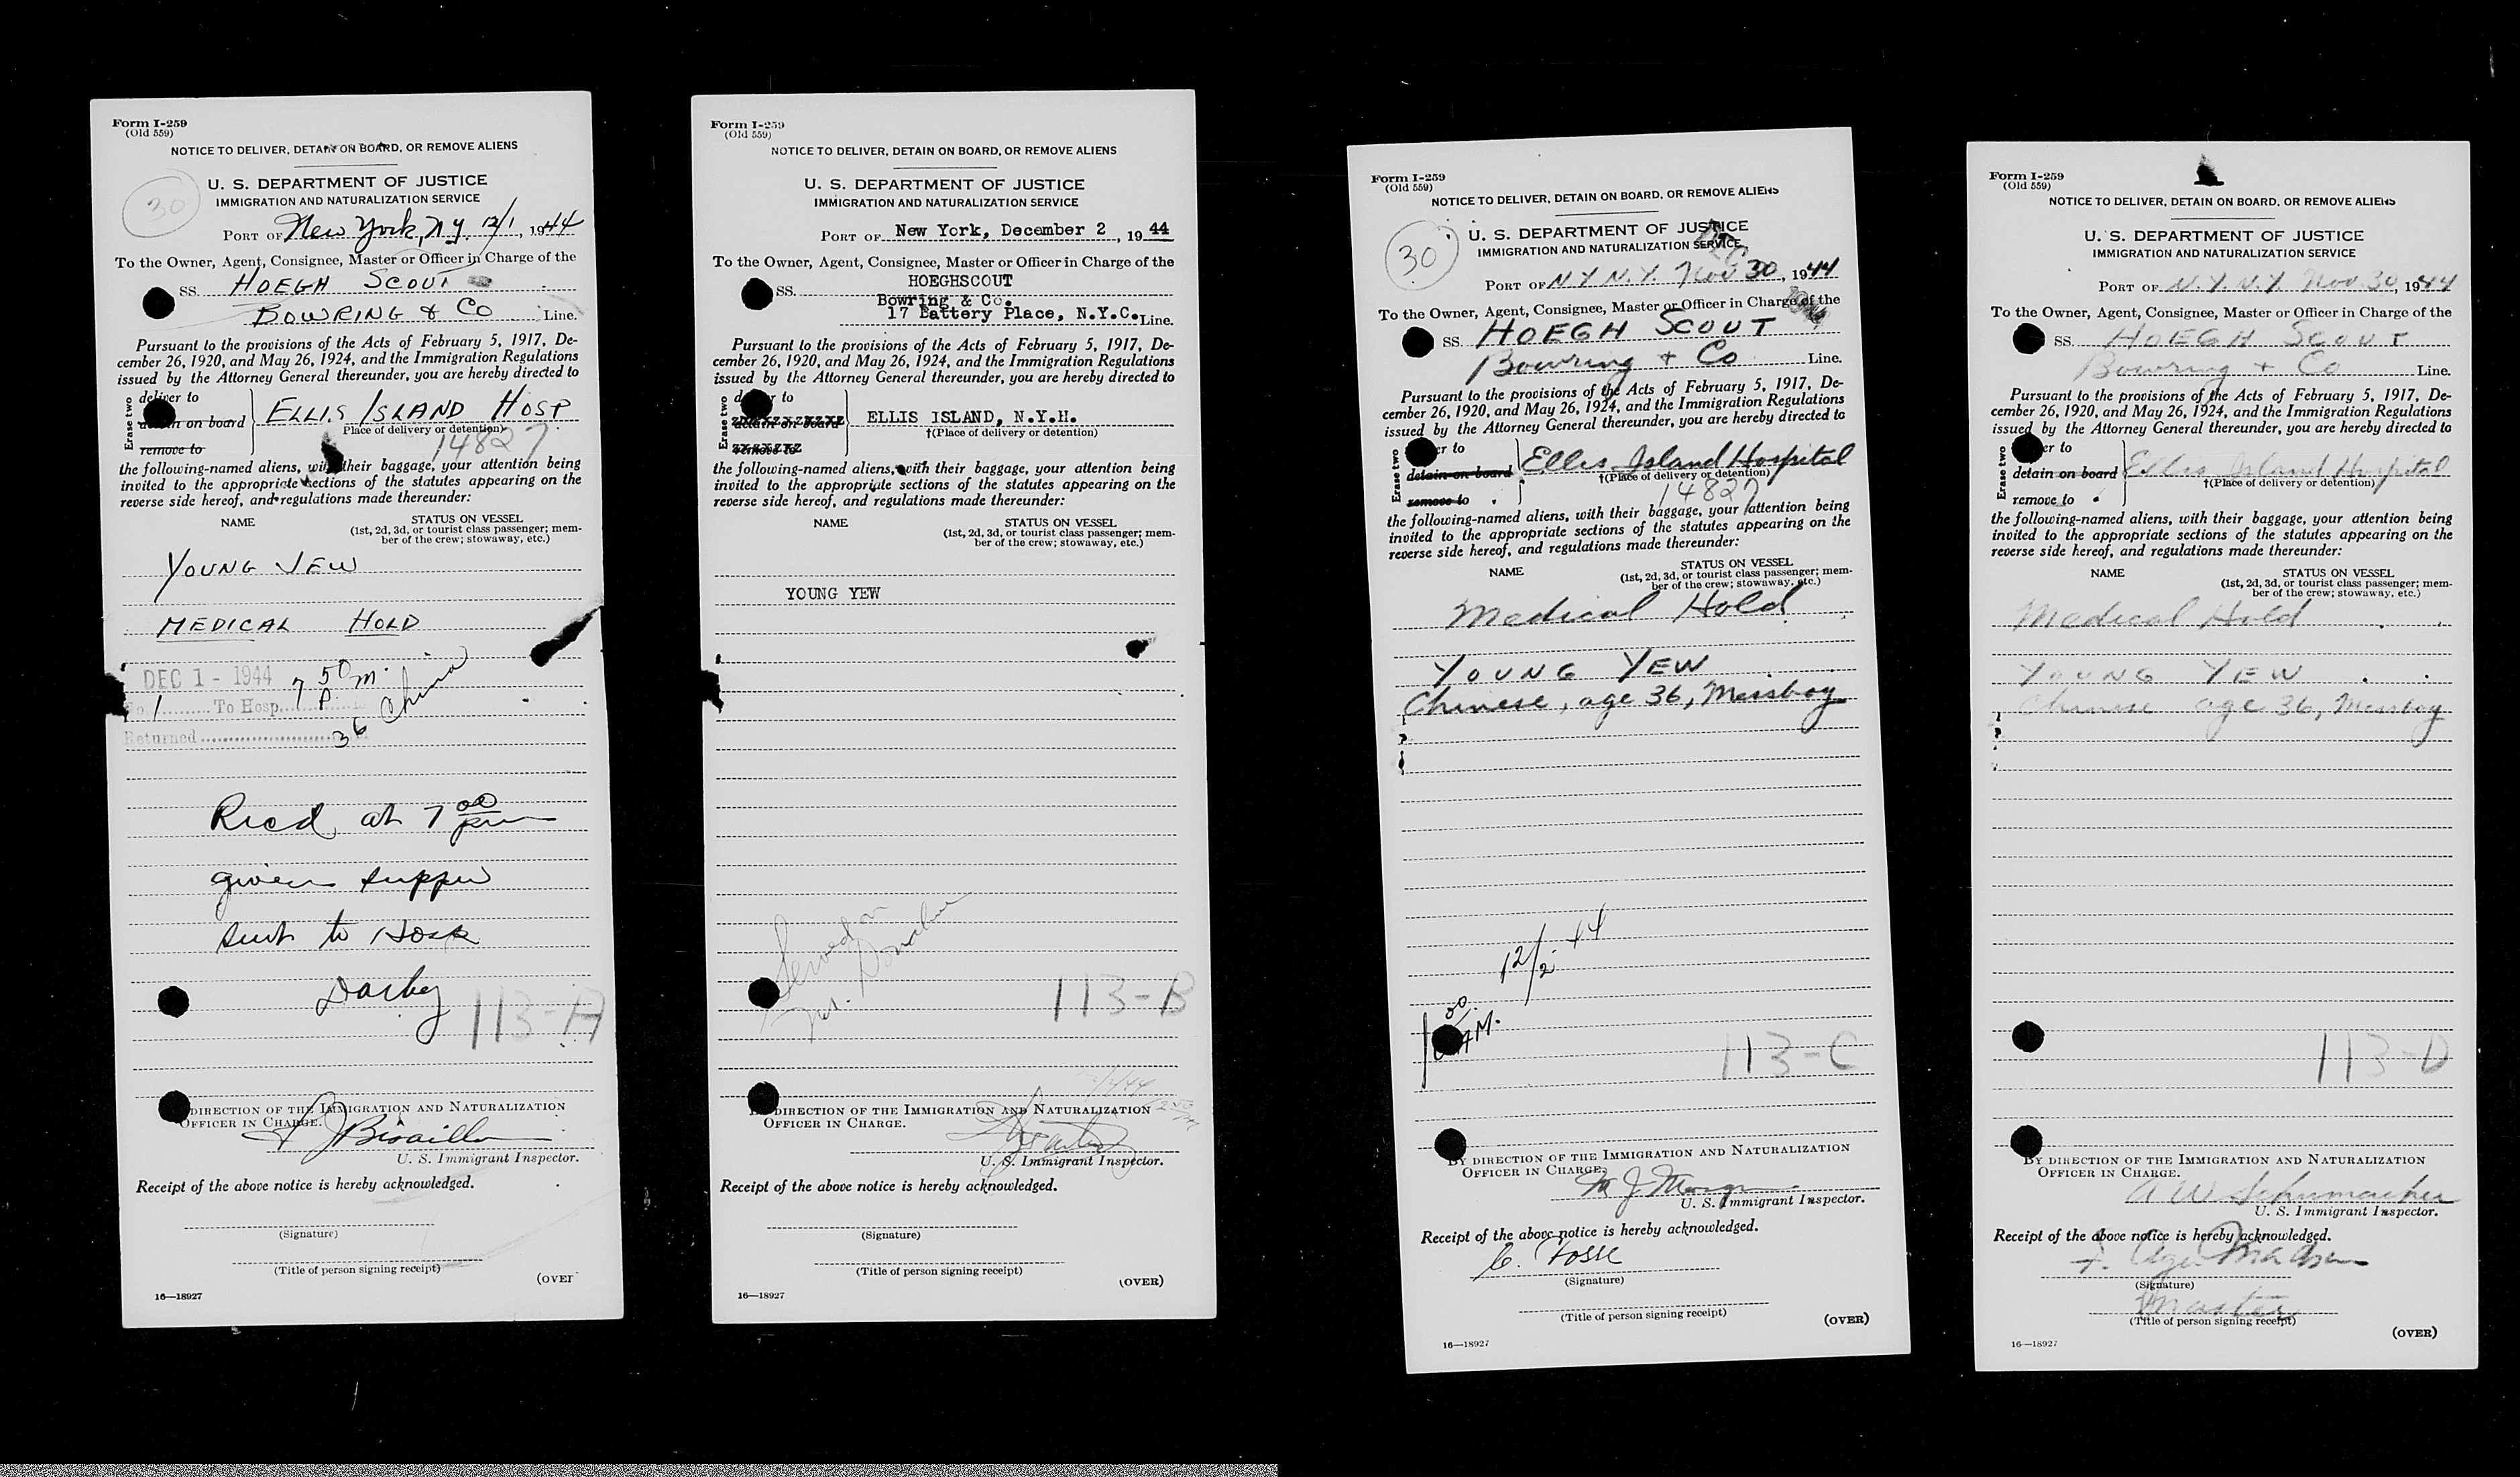 Form I-259
(Old 559)
NOTICE TO DELIVER, DETAIN ON BOARD, OR REMOVE ALIENS
30
U. S. DEPARTMENT OF JUSTICE
IMMIGRATION AND NATURALIZATION SERVICE
PORT OF New York, N.Y. 12/1, 1944
To the Owner, Agent, Consignee, Master or Officer in Charge of the
SS. HOEGH SCOUT
BOWRING & CO Line.
Pursuant to the provisions of the Acts of February 5, 1917, De-
cember 26, 1920, and May 26, 1924, and the Immigration Regulations
issued by the Attorney General thereunder, you are hereby directed to
Erase two
deliver to
detain on board
remove to
ELLIS ISLAND HOSP
Place of delivery or detention)
14827
the following-named aliens, with their baggage, your attention being
invited to the appropriate sections of the statutes appearing on the
reverse side hereof, and regulations made thereunder:
NAME STATUS ON VESSEL
(1st, 2d, 3d, or tourist class passenger; mem-
ber of the crew; stowaway, etc.)
YOUNG YEW
MEDICAL HOLD
DEC 1 - 1944 7 50 P m.
No. 1 To Hosp.
Returned
36 China
Recd at 7 00 pm
given supper
sent to Hosp
Darby
113-A
BY DIRECTION OF THE IMMIGRATION AND NATURALIZATION
OFFICER IN CHARGE.
U. S. Immigrant Inspector.
Receipt of the above notice is hereby acknowledged.
(Signature)
(Title of person signing receipt)
(OVER
16—18927
Form I-259
(Old 559)
NOTICE TO DELIVER, DETAIN ON BOARD, OR REMOVE ALIENS
U. S. DEPARTMENT OF JUSTICE
IMMIGRATION AND NATURALIZATION SERVICE
PORT OF New York, December 2, 19 44
To the Owner, Agent, Consignee, Master or Officer in Charge of the
SS. HOEGHSCOUT
Bowring & Co.
17 Battery Place, N.Y.C. Line.
Pursuant to the provisions of the Acts of February 5, 1917, De-
cember 26, 1920, and May 26, 1924, and the Immigration Regulations
issued by the Attorney General thereunder, you are hereby directed to
Erase two
to
detain on board
remove to
ELLIS ISLAND, N.Y.H.
†(Place of delivery or detention)
the following-named aliens, with their baggage, your attention being
invited to the appropriate sections of the statutes appearing on the
reverse side hereof, and regulations made thereunder:
NAME STATUS ON VESSEL
(1st, 2d, 3d, or tourist class passenger; mem-
ber of the crew; stowaway, etc.)
YOUNG YEW
Served on
Mr. Donahue
113-B
DIRECTION OF THE IMMIGRATION AND NATURALIZATION
OFFICER IN CHARGE.
U. S. Immigrant Inspector.
Receipt of the above notice is hereby acknowledged.
(Signature)
(Title of person signing receipt)
(OVER)
16—18927
Form I-259
(Old 559)
NOTICE TO DELIVER, DETAIN ON BOARD, OR REMOVE ALIENS
30
U. S. DEPARTMENT OF JUSTICE
IMMIGRATION AND NATURALIZATION SERVICE
PORT OF N.Y. N.Y. Nov 30, 1944
To the Owner, Agent, Consignee, Master or Officer in Charge of the
SS. HOEGH SCOUT
Bowring + Co Line.
Pursuant to the provisions of the Acts of February 5, 1917, De-
cember 26, 1920, and May 26, 1924, and the Immigration Regulations
issued by the Attorney General thereunder, you are hereby directed to
Erase two
er to
detain on board
remove to
Ellis Island Hospital
†(Place of delivery or detention)
14827
the following-named aliens, with their baggage, your attention being
invited to the appropriate sections of the statutes appearing on the
reverse side hereof, and regulations made thereunder:
NAME STATUS ON VESSEL
(1st, 2d, 3d, or tourist class passenger; mem-
ber of the crew; stowaway, etc.)
Medical Hold
YOUNG YEW
Chinese, age 36, Messboy
12/2 44
AM.
113-C
BY DIRECTION OF THE IMMIGRATION AND NATURALIZATION
OFFICER IN CHARGE.
U. S. Immigrant Inspector.
Receipt of the above notice is hereby acknowledged.
C. Fosse
(Signature)
(Title of person signing receipt)
(OVER)
16—18927
Form I-259
(Old 559)
NOTICE TO DELIVER, DETAIN ON BOARD, OR REMOVE ALIENS
U. S. DEPARTMENT OF JUSTICE
IMMIGRATION AND NATURALIZATION SERVICE
PORT OF N.Y. N.Y. Nov 30, 1944
To the Owner, Agent, Consignee, Master or Officer in Charge of the
SS. HOEGH SCOUT
Bowring + Co Line.
Pursuant to the provisions of the Acts of February 5, 1917, De-
cember 26, 1920, and May 26, 1924, and the Immigration Regulations
issued by the Attorney General thereunder, you are hereby directed to
Erase two
er to
detain on board
remove to
Ellis Island Hospital
†(Place of delivery or detention)
the following-named aliens, with their baggage, your attention being
invited to the appropriate sections of the statutes appearing on the
reverse side hereof, and regulations made thereunder:
NAME STATUS ON VESSEL
(1st, 2d, 3d, or tourist class passenger; mem-
ber of the crew; stowaway, etc.)
Medical Hold
YOUNG YEW
Chinese age 36, Messboy
113-D
BY DIRECTION OF THE IMMIGRATION AND NATURALIZATION
OFFICER IN CHARGE.
A W Schumacher
U. S. Immigrant Inspector.
Receipt of the above notice is hereby acknowledged.
(Signature)
Master
(Title of person signing receipt)
(OVER)
16—18927